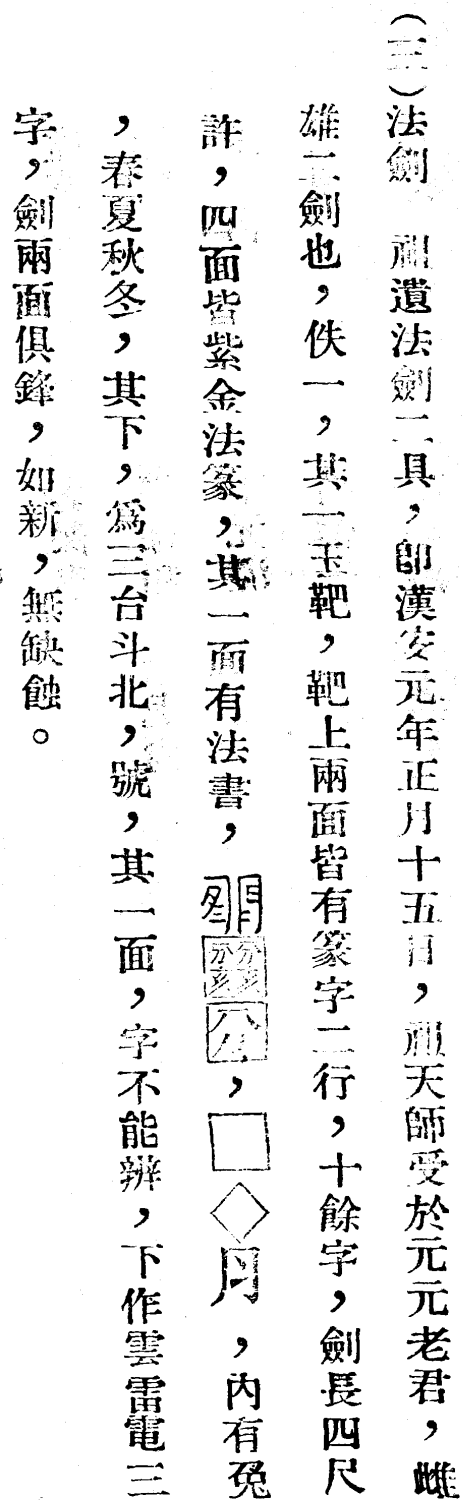 （三）法劍　祖遺法劍二具，卽漢安元年正月十五日，祖天師受於元元老君，雌
雄二劍也，佚一，其一玉靶，靶上兩面皆有篆字二行，十餘字，劍長四尺
許，四面皆紫金法篆，其一面有法書，□◇月，內有兔
，春夏秋冬，其下，爲三台斗北，號，其一面，字不能辨，下作雲雷電三
字，劍兩面俱鋒，如新，無缺蝕。